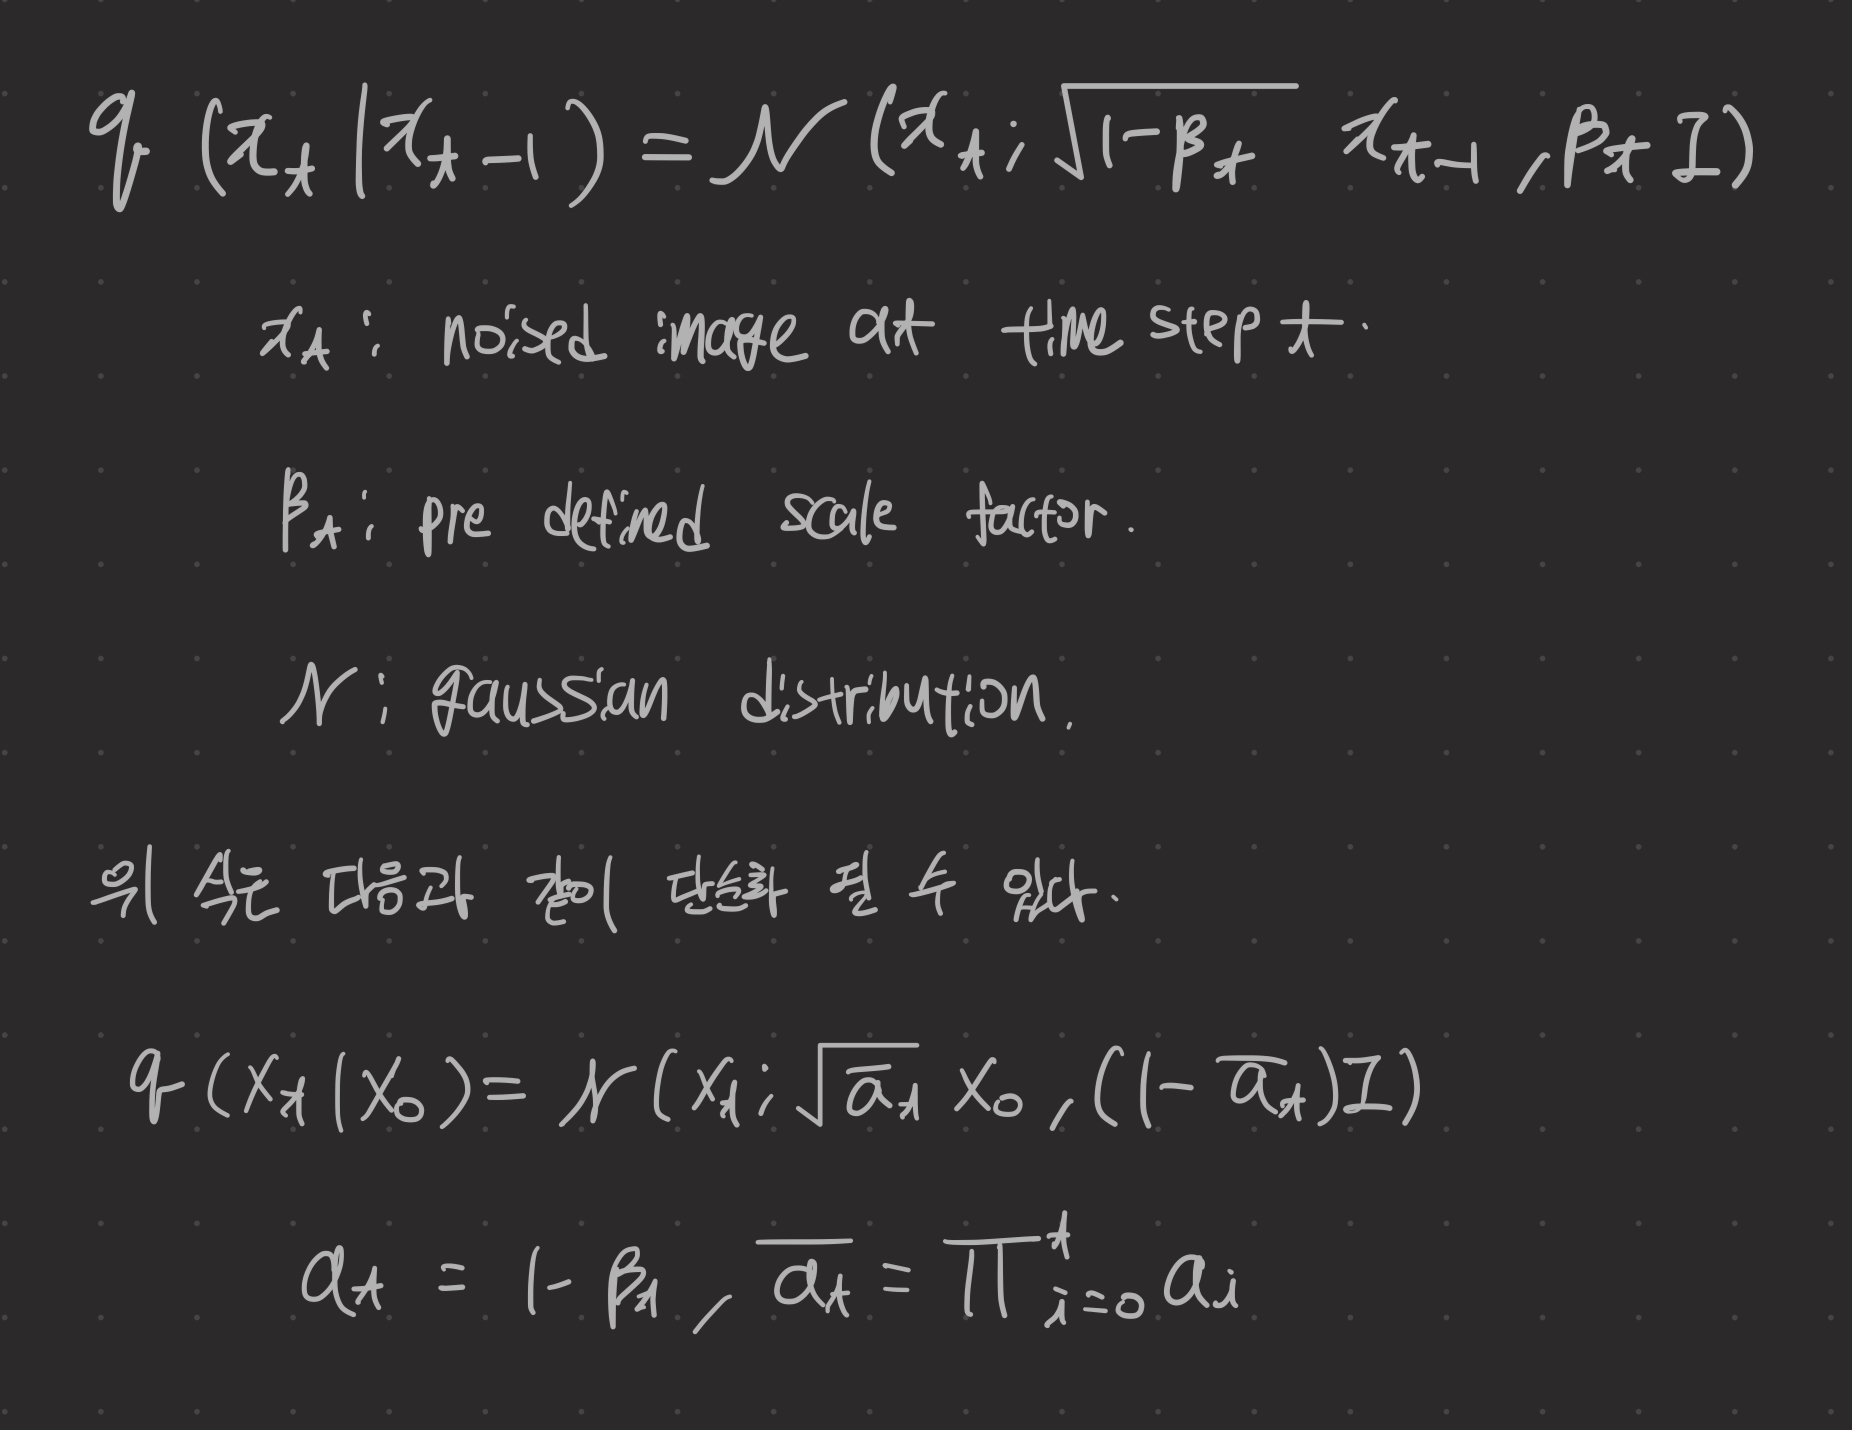 q (x_t | x_{t-1}) = N (x_t ; √(1-β_t) x_{t-1} , β_t I)
x_t : noised image at time step t.
β_t : pre defined scale factor.
N : gaussian distribution.
위 식은 다음과 같이 단순화 될 수 있다.
q (x_t | x_0) = N (x_t ; √(ā_t) x_0 , (1 - ā_t) I)
a_t = 1 - β_t , ā_t = Π^t_{i=0} a_i